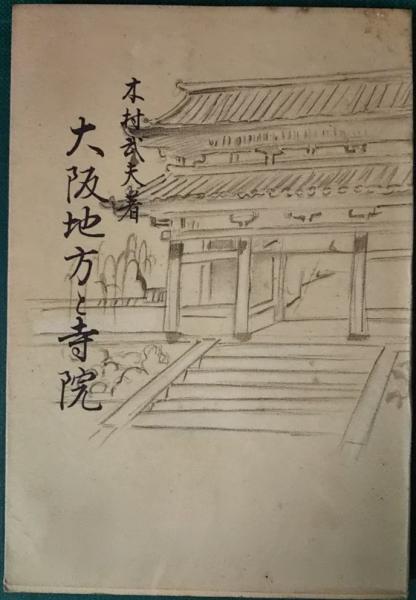 木村武夫著
大阪地方と寺院